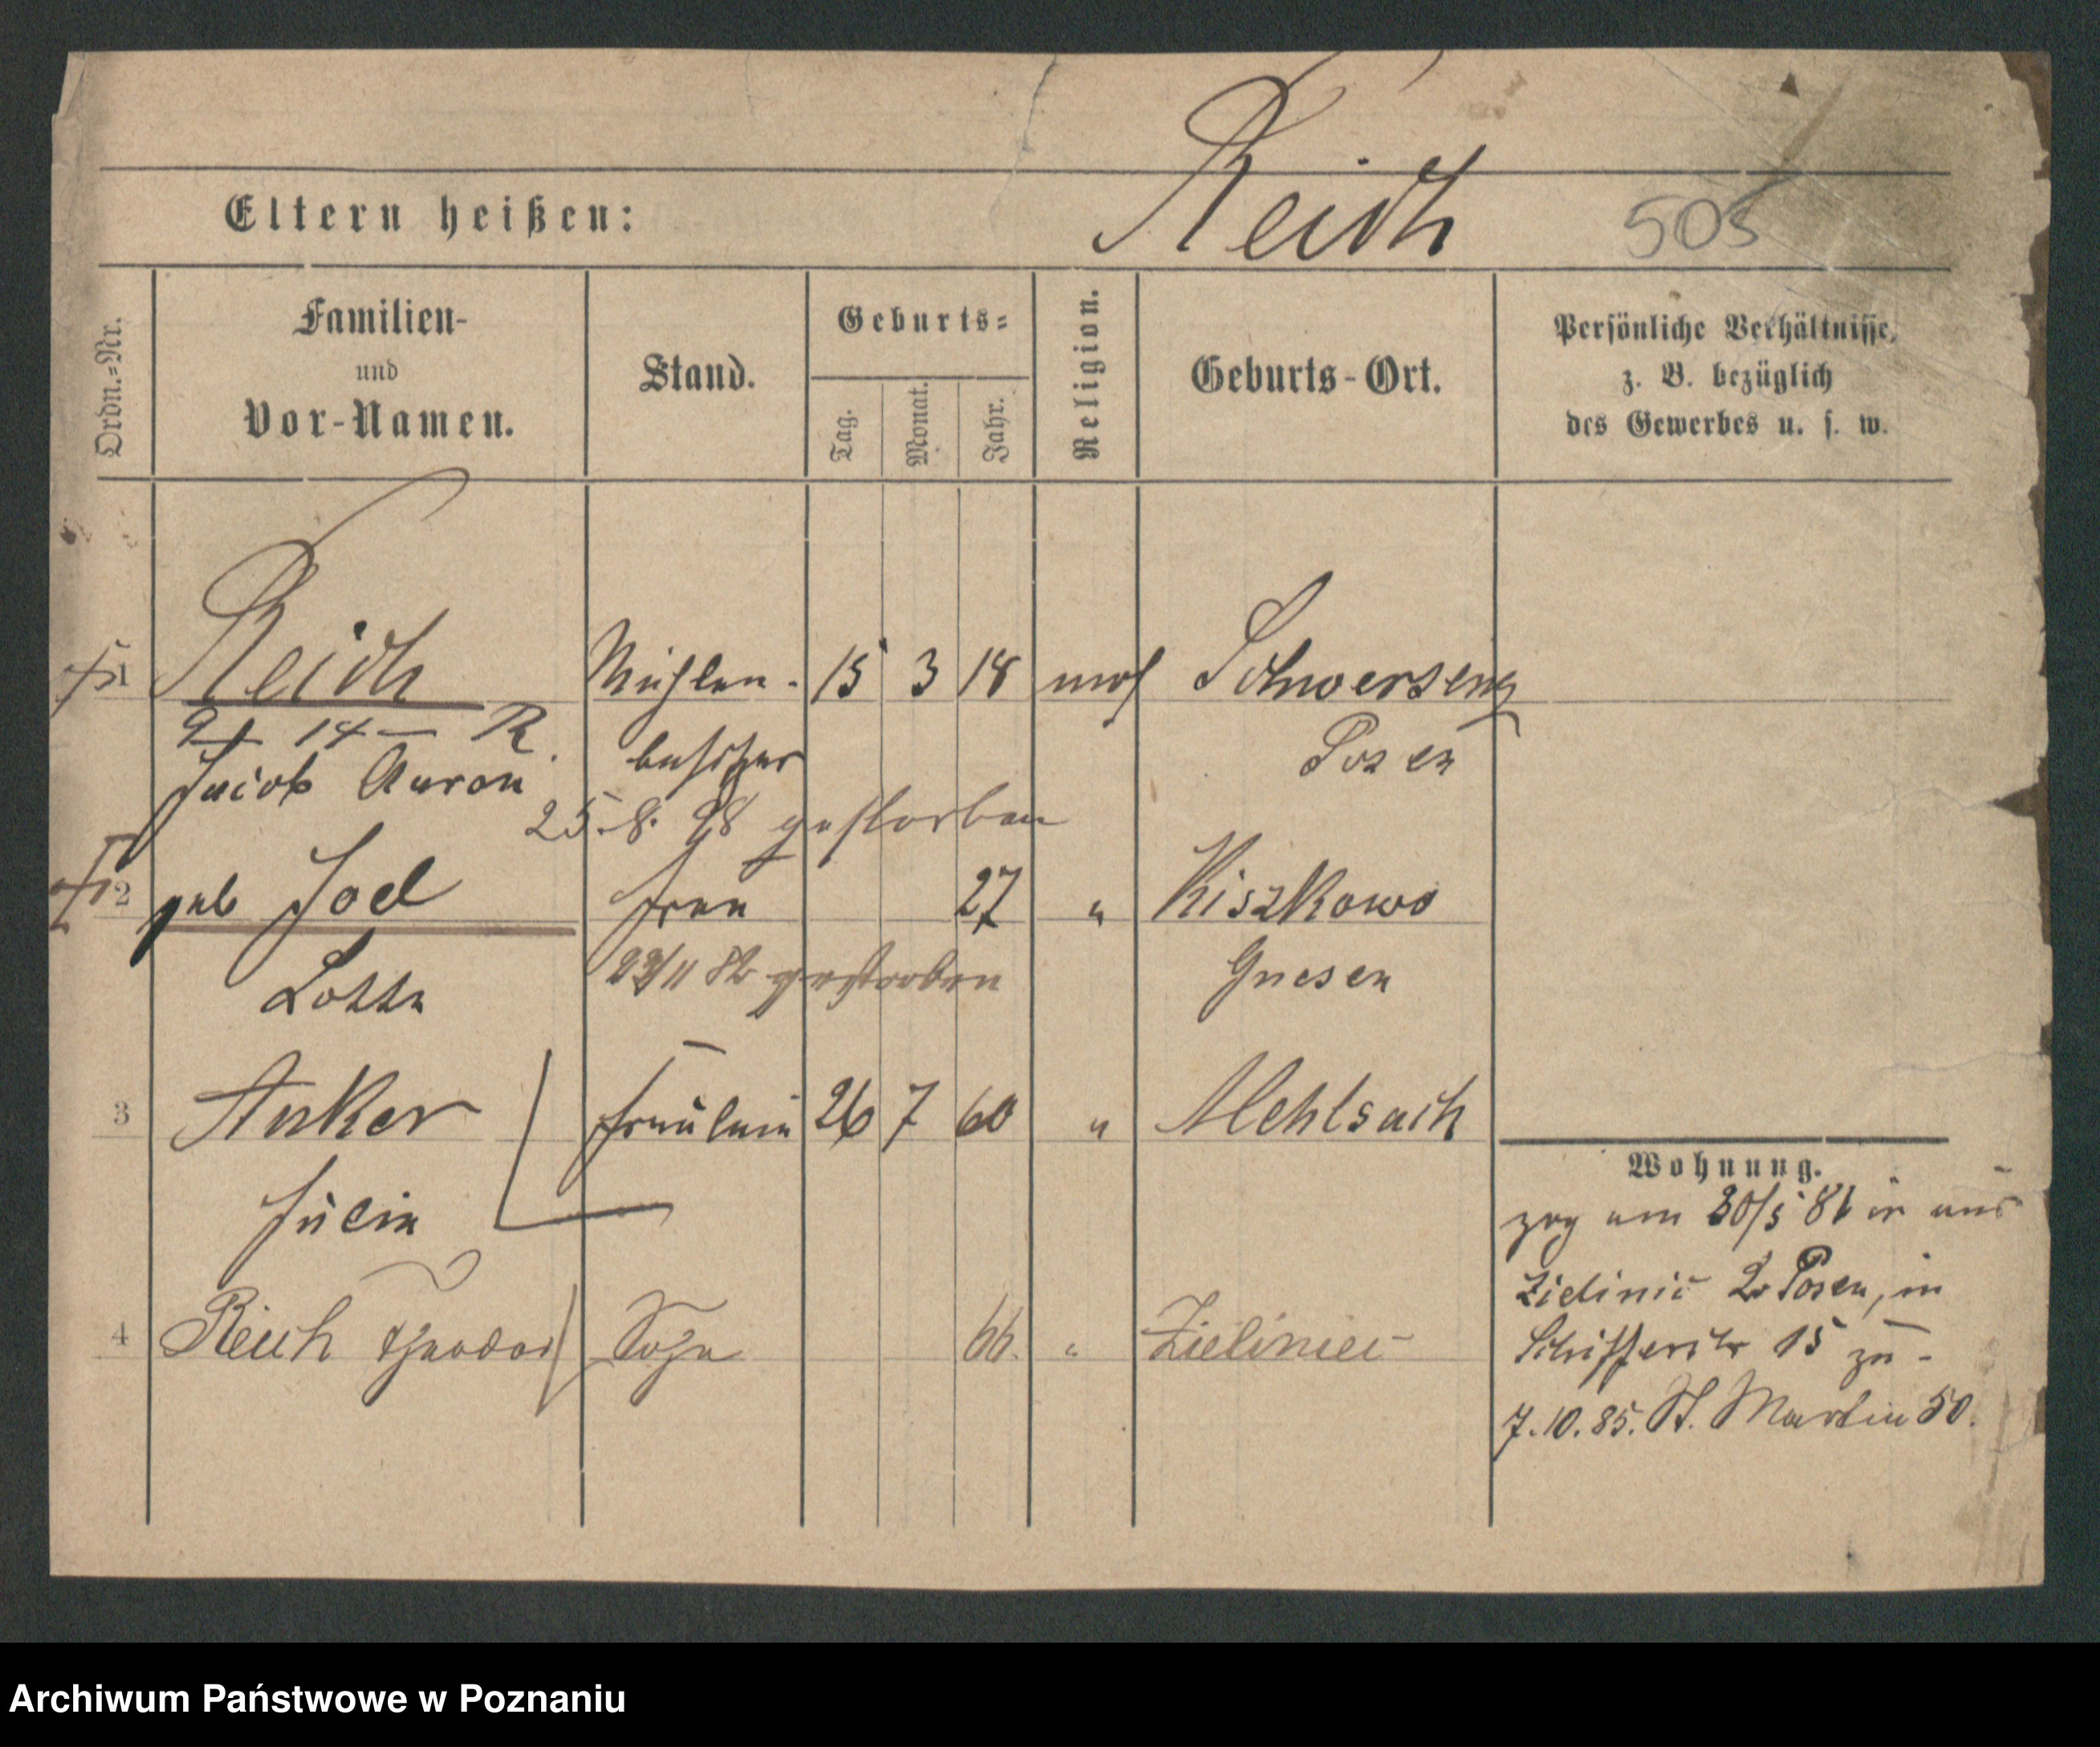 Reich
505
Eltern heißen:
Ordn.=Nr.
Familien-
und
Vor-Namen.
Stand.
Geburts=
Tag.
Monat.
Jahr.
Religion.
Geburts-Ort.
Persönliche Verhältnisse,
z. B. bezüglich
des Gewerbes u. s. w.
1 Reich Mühlen- 15 3 18 mos Schwersenz
14 — R.
Jacob Aaron besitzer Posen
25.8. 98 gestorben
2 geb Joel Frau 27 " Kiszkowo
Lotte 23/11 82 gestorben Gnesen
3 Anker Fräulein 26 7 60 " Mehlsack
Julie
4 Reich Theodor Sohn 66. " Zieliniec
Wohnung.
zog am 30/5 81 in aus
Zieliniec Posen, in
Schifferstr 15 zu-
7.10.85. St. Martin 50.
Archiwum Państwowe w Poznaniu